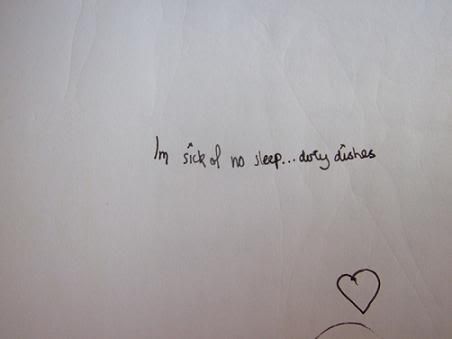 Im sick of no sleep...dirty dishes